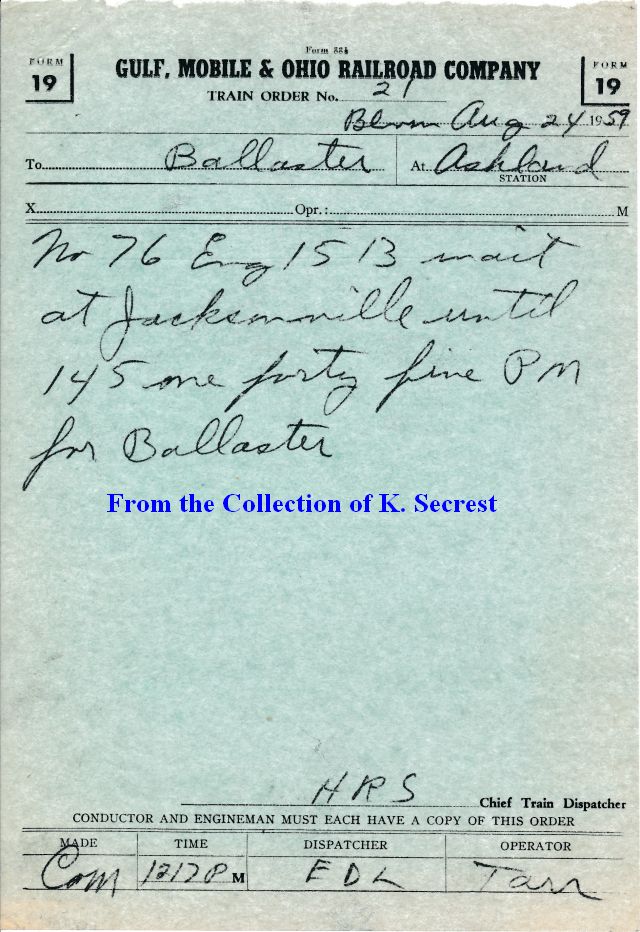 Form 88½
FORM 19
GULF, MOBILE & OHIO RAILROAD COMPANY
FORM 19
TRAIN ORDER No. 21
Bloom Aug 24 1959
To Ballaster At Ashland
STATION
X Opr.: M
No 76 Eng 1513 wait
at Jacksonville until
145 one forty five PM
for Ballaster
From the Collection of K. Secrest
HRS Chief Train Dispatcher
CONDUCTOR AND ENGINEMAN MUST EACH HAVE A COPY OF THIS ORDER
MADE TIME DISPATCHER OPERATOR
Com 1217P M EDL Tarr